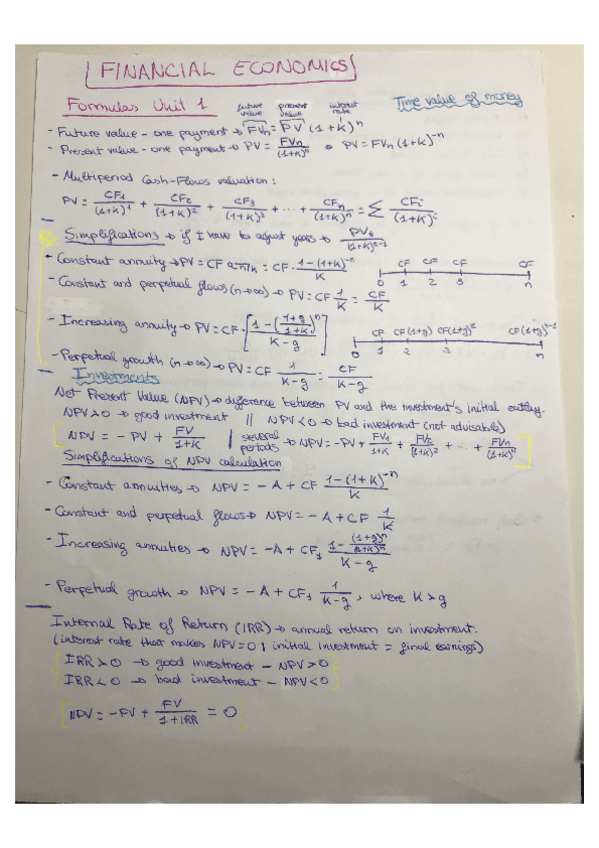 FINANCIAL ECONOMICS
Formulas Unit 1
Time value of money
future value present value interest rate
- Future value - one payment → FVn = PV (1+K)^n
- Present value - one payment → PV = FVn/(1+K)^n o PV = FVn (1+K)^-n
- Multiperiod Cash-Flows valuation:
PV = CF1/(1+K)^1 + CF2/(1+K)^2 + CF3/(1+K)^3 + ... + CFn/(1+K)^n = Σ CFi/(1+K)^i
Simplifications → if I have to adjust years →
- Constant annuity → PV = CF a n⌉k = CF · 1-(1+K)^-n/K
CF CF CF CF
0 1 2 3 n
- Constant and perpetual flows (n→∞) → PV = CF 1/K = CF/K
- Increasing annuity → PV = CF · [1-(1+g/1+K)^n/K-g]
CF CF(1+g) CF(1+g)^2 CF(1+g)^n-1
0 1 2 3 n
- Perpetual growth (n→∞) → PV = CF 1/K-g = CF/K-g
Investments
Net Present Value (NPV) → difference between PV and the investment's initial outlay.
NPV>0 → good investment || NPV<0 → bad investment (not advisable)
NPV = -PV + FV/1+K | several periods → NPV = -PV + FV1/1+K + FV2/(1+K)^2 + ... + FVn/(1+K)^n
Simplifications of NPV calculation
- Constant annuities → NPV = -A + CF 1-(1+K)^-n/K
- Constant and perpetual flows → NPV = -A + CF 1/K
- Increasing annuities → NPV = -A + CF1 1-(1+g)^n/(1+K)^n/K-g
- Perpetual growth → NPV = -A + CF1 1/K-g, where K>g
Internal Rate of Return (IRR) → annual return on investment.
(interest rate that makes NPV=0; initial investment = final earnings)
IRR>0 → good investment - NPV>0
IRR<0 → bad investment - NPV<0
NPV = -PV + FV/1+IRR = 0